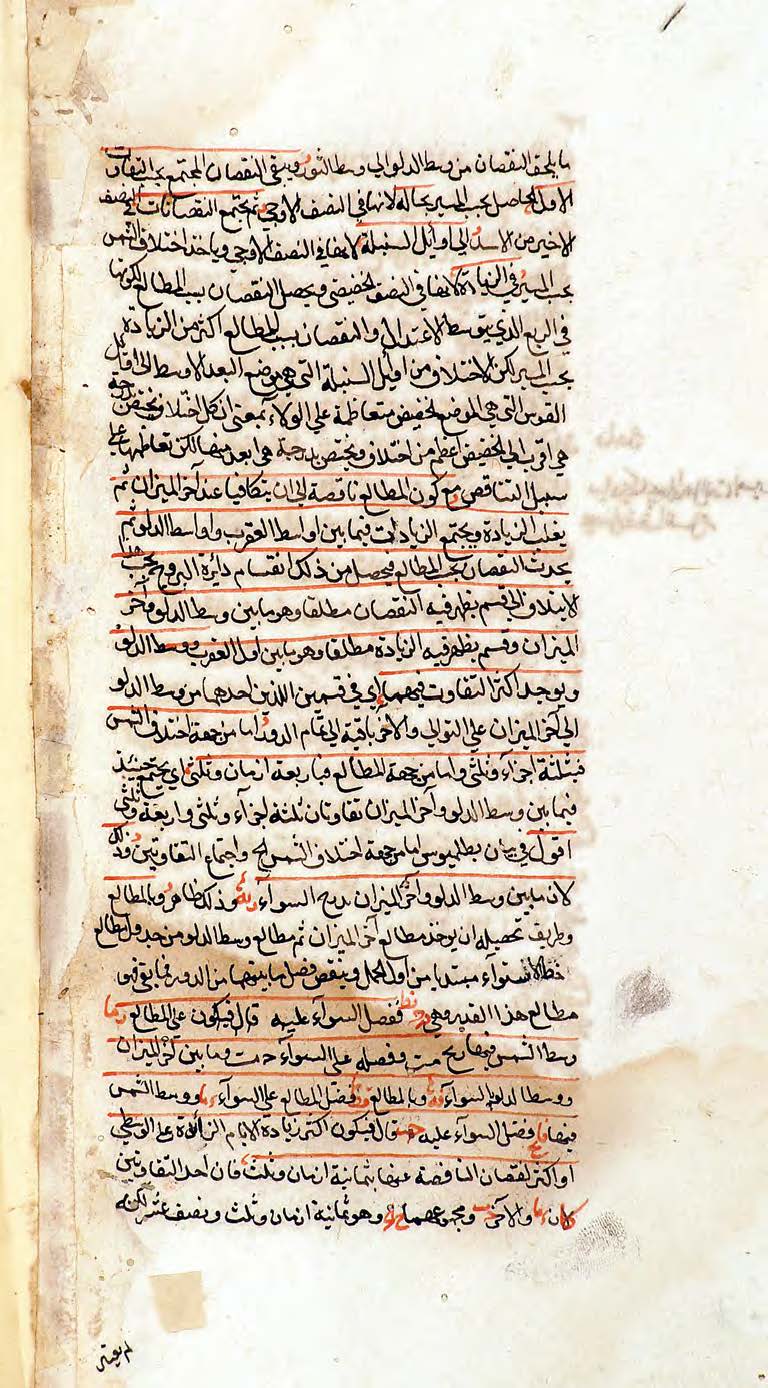 ما يلحق النقصان من وسط الدلو الى وسط الثور ويبقى النقصان المجتمع بحسب التفاوت
الاول الحاصل بحسب المسير بحاله لانها في النصف الاوجي ثم يجتمع النقصانات في النصف
الاخير من الاسد الى اوايل السنبلة لانها في النصف الاوجي وياخذ اختلاف الشمس
بحسب المسير في الزيادة لانها في النصف الحضيضي ويحصل النقصان بسبب المطالع لكونها
في الربع الذي يتوسط الاعتدال والنقصان بسبب المطالع اكثر من الزيادة
بحسب المسير لكن الاختلاف من اوايل السنبلة التي هي موضع البعد الاوسط الى اوايل
القوس التي هي الموضع الحضيض متعاظمة علي الولاء بمعنى ان كل اختلاف يختص بدرجة
هي اقرب الى الحضيض اعظم من اختلاف يختص بدرجة هي ابعد منها لكن تعاظمها على
سبيل التناقص مع كون المطالع ناقصة الى ان يتكافيا عند آخر الميزان ثم
يغلب الزيادة ويجتمع الزيادات فيما بين اواسط العقرب واواسط الدلو ثم
يحدث النقصان بحسب المطالع فحصل من ذلك انقسام دائرة البروج بحسب
الاختلاف الى قسم يظهر فيه النقصان مطلقا وهو ما بين وسط الدلو وآخر
الميزان وقسم يظهر فيه الزيادة مطلقا وهو ما بين اول العقرب ووسط الدلو
ويوجد اكثر التفاوت فيهما اي في قسمين اللذين احدهما من وسط الدلو
الى آخر الميزان علي التوالي والآخر باقية الى تمام الدور اما من جهة اختلاف الشمس
فبثلثة اجزآء وثلثي واما من جهة المطالع فباربعة ازمان وثلثي اي يجتمع حينئذ
فيما بين وسط الدلو وآخر الميزان تفاوتان ثلثة اجزآء وثلثي واربعة وثلثي
اقول في بيان بطلميوس اما من جهة اختلاف الشمس الخ واجتماع التفاوتين وذلك
لان ما بين وسط الدلو وآخر الميزان بدرج السوآء وذلك ظاهر وبالمطالع
وطريق تحصيله ان يوخذ مطالع آخر الميزان ثم مطالع وسط الدلو من جدول مطالع
خط الاستوآء مبتديا من اول الحمل وينقص فضل ما بينهما من الدور فما بقي فهو
مطالع هذا القدر وهي ففضل السوآء عليه قال فيكون على المطالع
وسط الشمس فيها وفضله على السوآء وما بين آخر الميزان
ووسط الدلو بالسوآء وبالمطالع ففضل المطالع على السوآء ووسط الشمس
فيها ففضل السوآء عليه قال فيكون اكثر زيادة الايام الزائدة على الوسطي
او اكثر نقصان الناقصة عنها بثمانية ازمان وثلث فان احد التفاوتين
كان والآخر ومجموعهما وهو ثمانية ازمان وثلث ونصف عشر لكنه
لم يعتبر